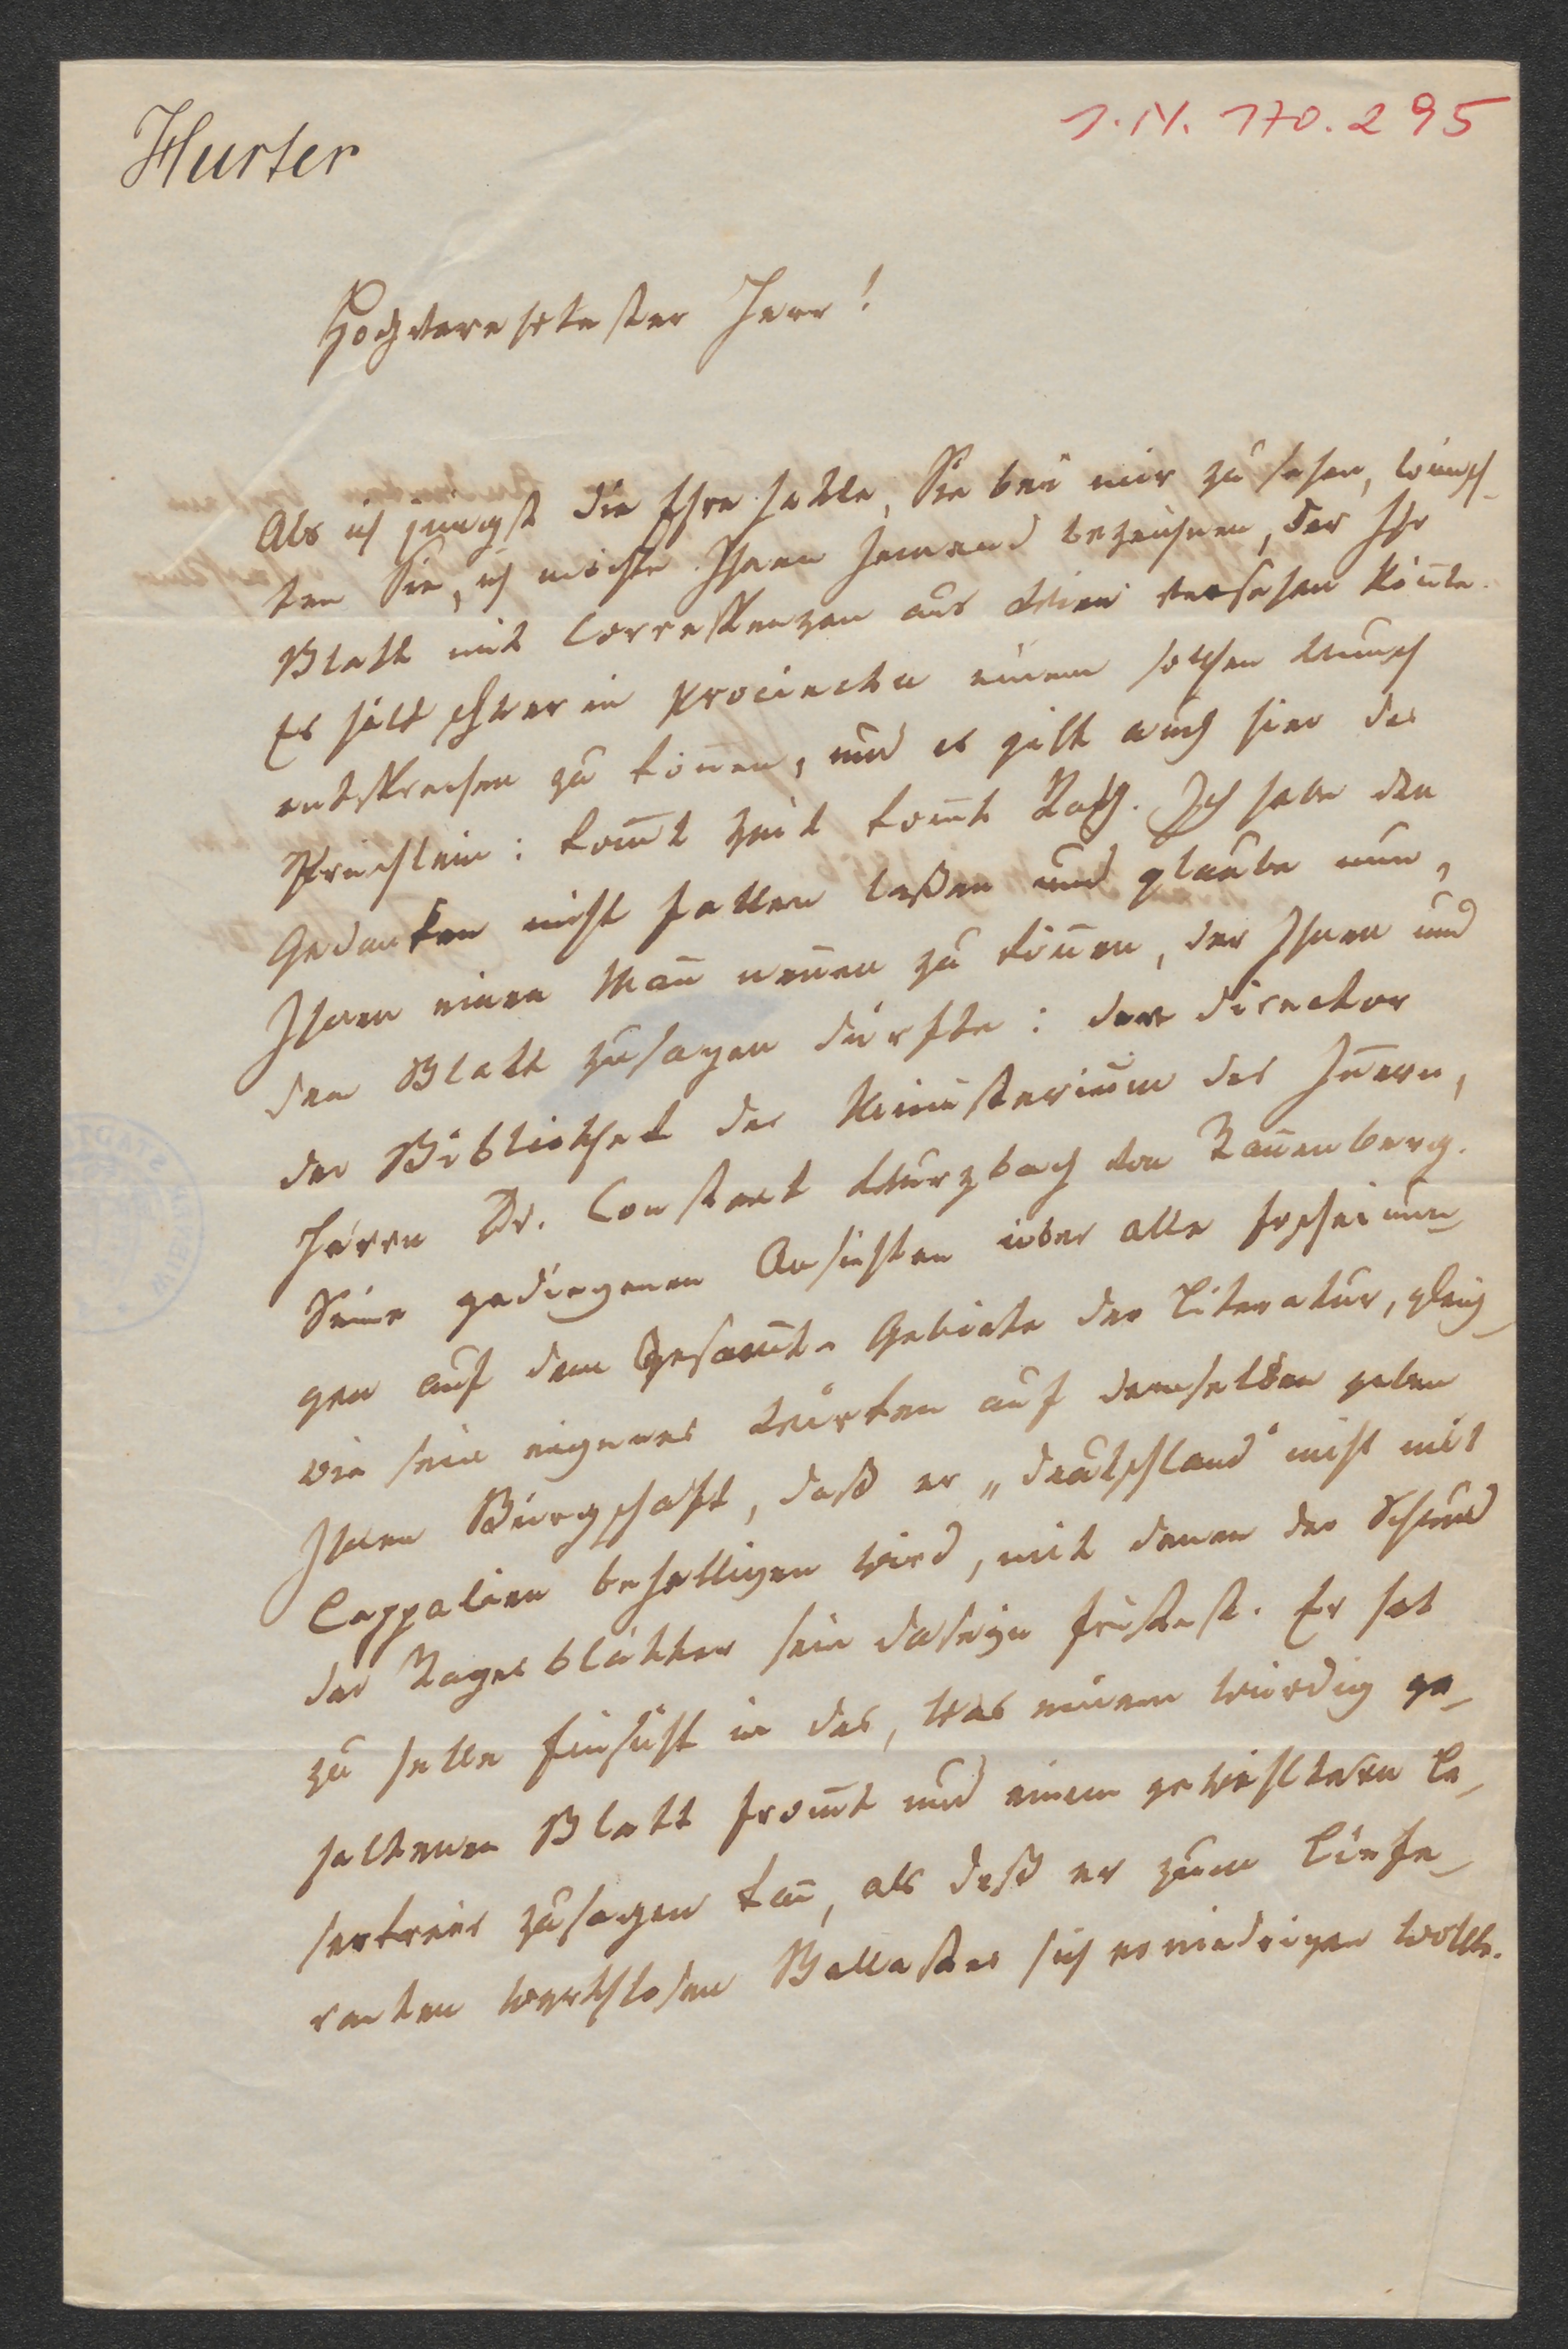 Hurter
I.N. 170.295
Hochverehrtester Herr!
Als ich jüngst die Ehre hatte, Sie bei mir zu sehen, wünsch-
ten Sie, ich möchte Ihnen Jemand bezeichnen, der Ihr
Blatt mit Correspenzen aus Wien versehen könte.
Es hält schwer in procinctu einem solchen Wunsch
entsprechen zu kön̄en, und es gilt auch hier das
Sprüchlein: kom̄t Zeit kom̄t Rath. Ich habe den
Gedanken nicht fallen laßen und glaube nun,
Ihnen einen Man̄ nen̄en zu kön̄en, der Ihnen und
dem Blatt zusagen dürfte: der Director
der Bibliothek des Ministerium des In̄ern,
Herrn Dr. Constant Wurzbach von Tan̄enberg.
Seine gediegenen Ansichten über alle Erscheinun-
gen auf dem Gesam̄t-Gebiete der Literatur, gleich-
wie sein eigenes Wirken auf demselben geben
Ihnen Bürgschaft, daß er „Deutschland" nicht mit
Lappalien behelligen wird, mit denen der Schund
der Tagesblätter sein Daseyn fristest. Er hat
zu helle Einsicht in das, was einem würdig ge-
haltenen Blatt from̄t und einem gewählteren Le-
serkreis zusagen kan̄, als daß er zum Liefe-
ranten werthlosen Ballastes sich erniedrigen wollte.